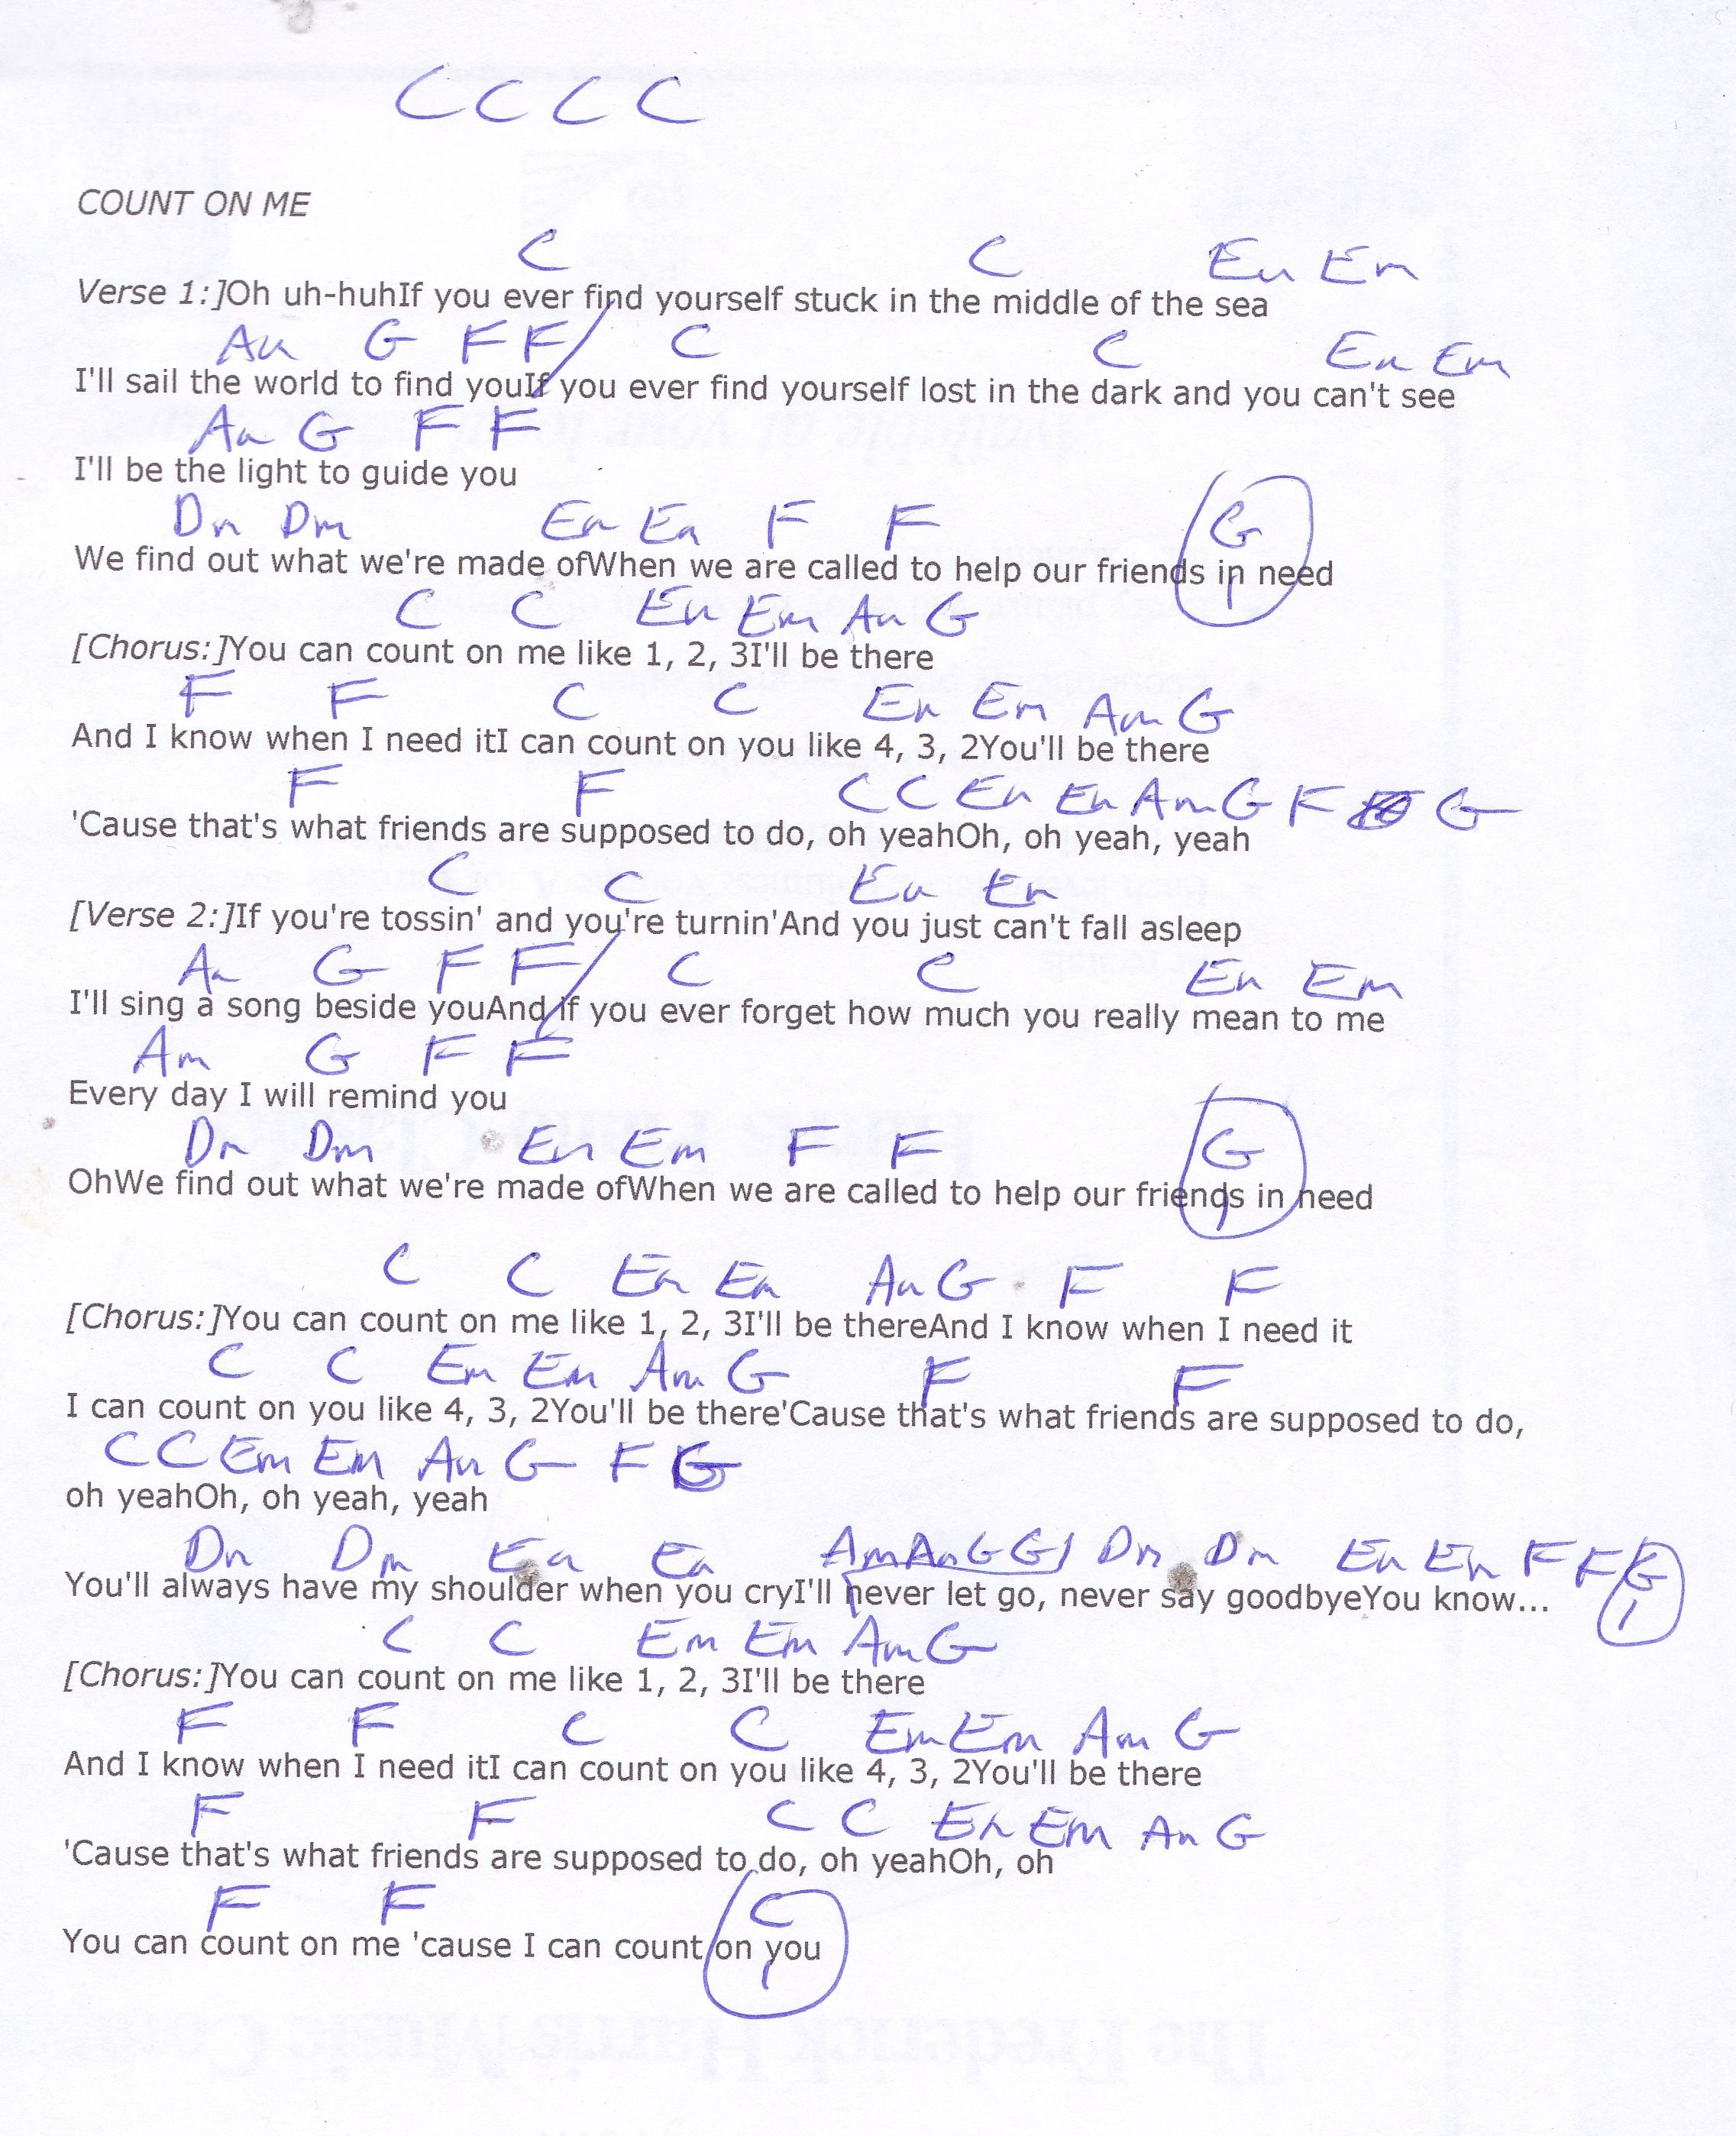 C C C C
COUNT ON ME
C C Em Em
Verse 1:]Oh uh-huhIf you ever find yourself stuck in the middle of the sea
Am G F F / C C Em Em
I'll sail the world to find youIf you ever find yourself lost in the dark and you can't see
Am G F F
I'll be the light to guide you
Dm Dm Em Em F F G
We find out what we're made ofWhen we are called to help our friends in need
1
C C Em Em Am G
[Chorus:]You can count on me like 1, 2, 3I'll be there
F F C C Em Em Am G
And I know when I need itI can count on you like 4, 3, 2You'll be there
F F C C Em Em Am G F G
'Cause that's what friends are supposed to do, oh yeahOh, oh yeah, yeah
C C Em Em
[Verse 2:]If you're tossin' and you're turnin'And you just can't fall asleep
Am G F F / C C Em Em
I'll sing a song beside youAnd if you ever forget how much you really mean to me
Am G F F
Every day I will remind you
Dm Dm Em Em F F G
OhWe find out what we're made ofWhen we are called to help our friends in need
1
C C Em Em Am G F F
[Chorus:]You can count on me like 1, 2, 3I'll be thereAnd I know when I need it
C C Em Em Am G F F
I can count on you like 4, 3, 2You'll be there'Cause that's what friends are supposed to do,
C C Em Em Am G F G
oh yeahOh, oh yeah, yeah
Dm Dm Em Em Am Am G G Dm Dm Em Em F F G
You'll always have my shoulder when you cryI'll never let go, never say goodbyeYou know...
1
C C Em Em Am G
[Chorus:]You can count on me like 1, 2, 3I'll be there
F F C C Em Em Am G
And I know when I need itI can count on you like 4, 3, 2You'll be there
F F C C Em Em Am G
'Cause that's what friends are supposed to do, oh yeahOh, oh
F F C
You can count on me 'cause I can count on you
1